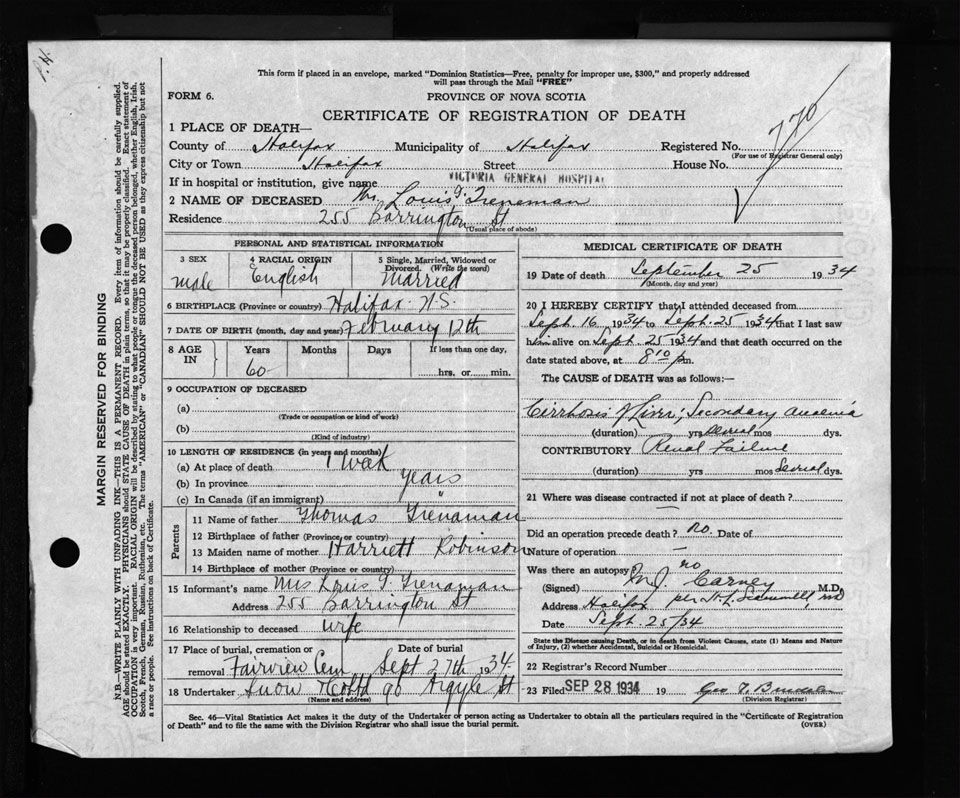 P.H.
This form if placed in an envelope, marked "Dominion Statistics—Free, penalty for improper use, $300," and properly addressed
will pass through the Mail "FREE"
FORM 6.
PROVINCE OF NOVA SCOTIA
CERTIFICATE OF REGISTRATION OF DEATH
770
1 PLACE OF DEATH—
County of Halifax Municipality of Halifax Registered No.
(For use of Registrar General only)
City or Town Halifax Street House No.
If in hospital or institution, give name VICTORIA GENERAL HOSPITAL
2 NAME OF DECEASED Mr. Louis G. Treneman
Residence 255 Barrington St
(Usual place of abode)
PERSONAL AND STATISTICAL INFORMATION
3 SEX 4 RACIAL ORIGIN 5 Single, Married, Widowed or
Divorced. (Write the word)
male English Married
6 BIRTHPLACE (Province or country) Halifax N.S.
7 DATE OF BIRTH (month, day and year) February 12th
8 AGE IN Years Months Days If less than one day,
60 hrs. or min.
9 OCCUPATION OF DECEASED
(a)
(Trade or occupation or kind of work)
(b)
(Kind of industry)
10 LENGTH OF RESIDENCE (in years and months)
(a) At place of death 1 week
(b) In province years
(c) In Canada (if an immigrant) "
Parents
11 Name of father Thomas Trenaman
12 Birthplace of father (Province or country)
13 Maiden name of mother Harriett Robinson
14 Birthplace of mother (Province or country)
15 Informant's name Mrs Louis G. Trenaman
Address 255 Barrington St
16 Relationship to deceased wife
17 Place of burial, cremation or Date of burial
removal Fairview Cem Sept 27th 1934
18 Undertaker Snow & Co Ltd 90 Argyle St
(Name and address)
MEDICAL CERTIFICATE OF DEATH
19 Date of death September 25 1934
(Month, day and year)
20 I HEREBY CERTIFY that I attended deceased from
Sept. 16 1934 to Sept. 25 1934 that I last saw
him alive on Sept. 25 1934 and that death occurred on the
date stated above, at 8 10 p m.
The CAUSE of DEATH was as follows:—
Cirrhosis of Liver; Secondary anaemia
(duration) yrs several mos dys.
CONTRIBUTORY Renal Failure
(duration) yrs mos several dys.
21 Where was disease contracted if not at place of death?
—
Did an operation precede death? No. Date of
Nature of operation —
Was there an autopsy no
(Signed) M.J. Carney M.D.
Address Halifax per
Date Sept. 25/34
State the Disease causing Death, or in death from Violent Causes, state (1) Means and Nature
of Injury, (2) whether Accidental, Suicidal or Homicidal.
22 Registrar's Record Number
23 Filed SEP 28 1934 19 Geo
(Division Registrar)
Sec. 46—Vital Statistics Act makes it the duty of the Undertaker or person acting as Undertaker to obtain all the particulars required in the "Certificate of Registration
of Death" and to file the same with the Division Registrar who shall issue the burial permit. (OVER)
MARGIN RESERVED FOR BINDING
N.B.—WRITE PLAINLY WITH UNFADING INK—THIS IS A PERMANENT RECORD. Every item of information should be carefully supplied.
AGE should be stated EXACTLY. PHYSICIANS should STATE CAUSE OF DEATH in plain terms, so that it may be properly classified. Exact statement of
OCCUPATION is very important. RACIAL ORIGIN will be described by stating to what people or tongue the deceased person belonged, whether English, Irish,
Scotch, French, German, Russian, Ruthenian, etc. The terms "AMERICAN" or "CANADIAN" SHOULD NOT BE USED as they express citizenship but not
a race or people. See instructions on back of Certificate.